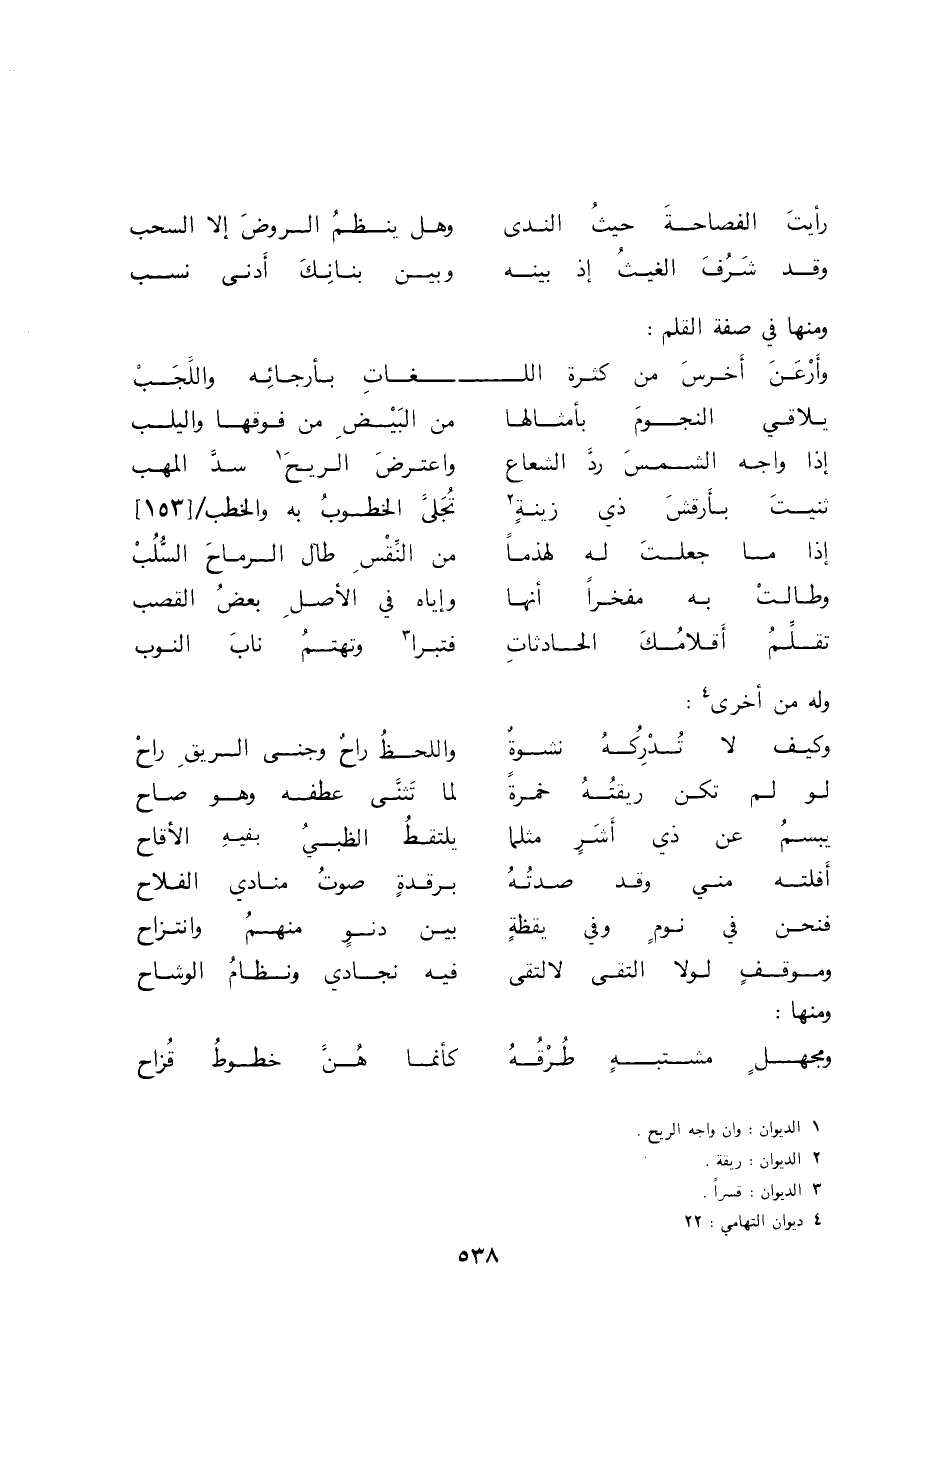 رأيتَ الفصاحةَ حيثُ الندى وهل ينظمُ الروضَ إلا السحب
وقد شَرُفَ الغيثُ إذ بينه وبين بنانِكَ أدنى نسب
ومنها في صفة القلم :
وأرْعَنَ أخرسَ من كثرة اللغاتِ بأرجائِه واللَّجَبْ
يلاقي النجومَ بأمثالها من البَيْضِ من فوقها واليلب
إذا واجه الشمسَ ردَّ الشعاع واعترضَ الريحَ١ سدَّ المهب
ثنيتَ بأرقشَ ذي زينةٍ٢ تُجَلىَّ الخطوبُ به والخطب/[١٥٣]
إذا ما جعلتَ له لهذماً من النَّقْسِ طالَ الرماحَ السُّلُبْ
وطالتْ به مفخراً أنها وإياه في الأصلِ بعضُ القصب
تقلِّمُ أقلامُكَ الحادثاتِ فتبرا٣ وتهتمُ نابَ النوب
وله من أخرى٤ :
وكيف لا تُدْركهُ نشوةٌ واللحظُ راحٌ وجنى الريقِ راحْ
لو لم تكن ريقتُهُ خمرةً لما تَثنَّى عطفه وهو صاح
يبسمُ عن ذي أشَرٍ مثلما يلتقطُ الظبيُ بفيهِ الأقاح
أفلته مني وقد صدتُهُ برقدةٍ صوتُ منادي الفلاح
فنحن في نومٍ وفي يقظةٍ بين دنوٍ منهمُ وانتزاح
وموقفٍ لولا التقى لالتقى فيه نجادي ونظامُ الوشاح
ومنها :
ومجهلٍ مشتبهٍ طُرْقُهُ كأنما هُنَّ خطوطُ قُزاح
١ الديوان : وان واجه الريح .
٢ الديوان : ريقة .
٣ الديوان : قسراً .
٤ ديوان التهامي : ٢٢
٥٣٨